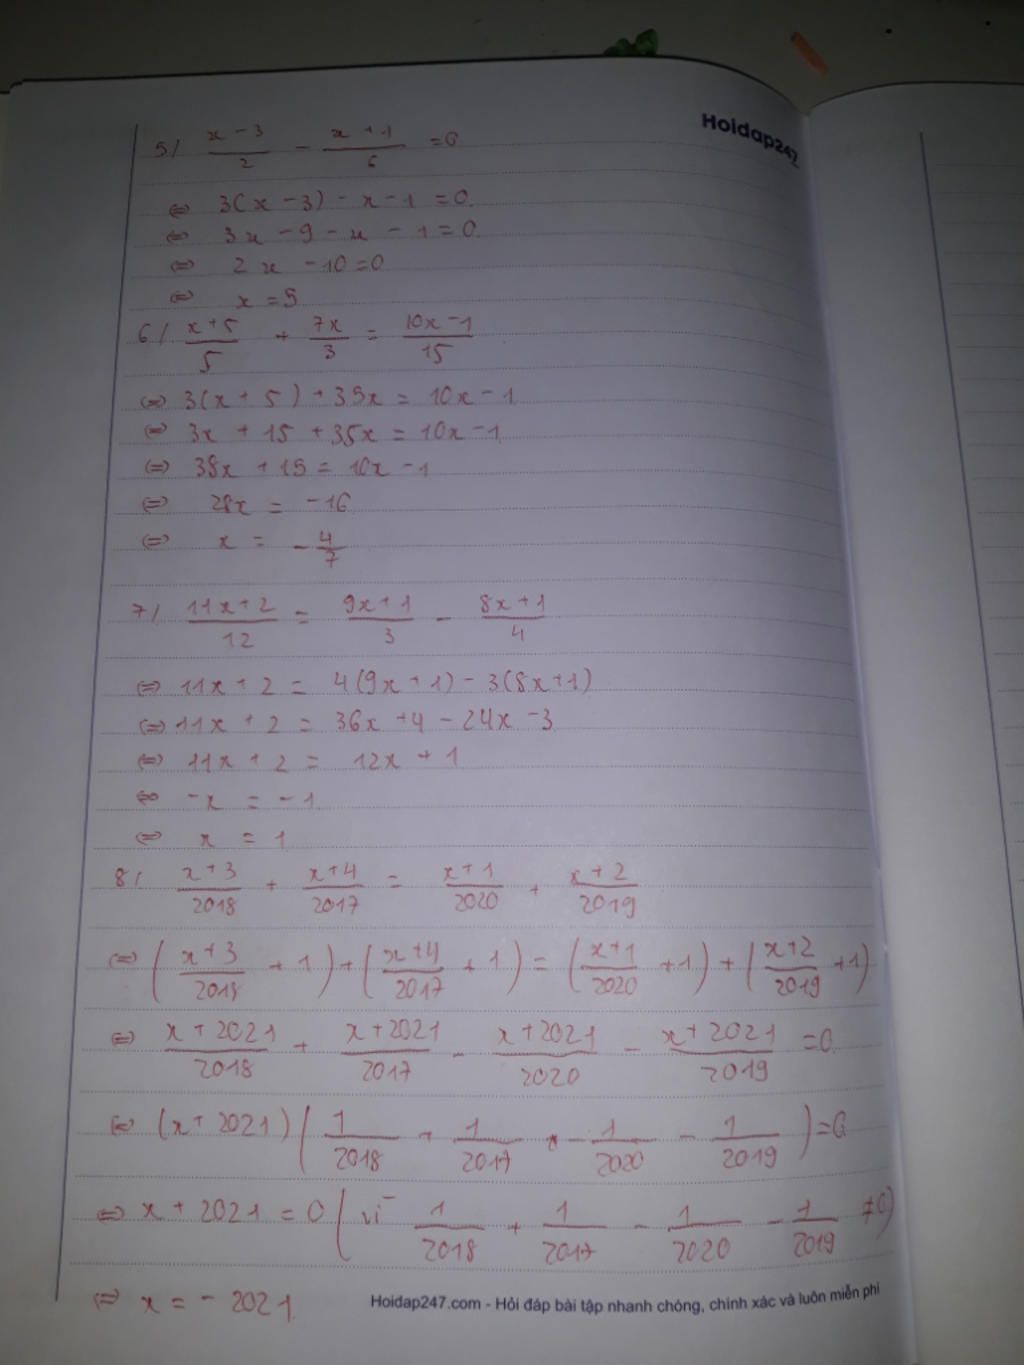 Hoidap247
5/ (x - 3)/2 - (x + 1)/6 = 0
⇔ 3(x - 3) - x - 1 = 0
⇔ 3x - 9 - x - 1 = 0
⇔ 2x - 10 = 0
⇔ x = 5
6/ (x + 5)/5 + 7x/3 = (10x - 1)/15
⇔ 3(x + 5) + 35x = 10x - 1
⇔ 3x + 15 + 35x = 10x - 1
⇔ 38x + 15 = 10x - 1
⇔ 28x = -16
⇔ x = -4/7
7/ (11x + 2)/12 = (9x + 1)/3 - (8x + 1)/4
⇔ 11x + 2 = 4(9x + 1) - 3(8x + 1)
⇔ 11x + 2 = 36x + 4 - 24x - 3
⇔ 11x + 2 = 12x + 1
⇔ -x = -1
⇔ x = 1
8/ (x + 3)/2018 + (x + 4)/2017 = (x + 1)/2020 + (x + 2)/2019
⇔ ((x + 3)/2018 + 1) + ((x + 4)/2017 + 1) = ((x + 1)/2020 + 1) + ((x + 2)/2019 + 1)
⇔ (x + 2021)/2018 + (x + 2021)/2017 - (x + 2021)/2020 - (x + 2021)/2019 = 0
⇔ (x + 2021)(1/2018 + 1/2017 - 1/2020 - 1/2019) = 0
⇔ x + 2021 = 0 (vì 1/2018 + 1/2017 - 1/2020 - 1/2019 ≠ 0)
⇔ x = -2021
Hoidap247.com - Hỏi đáp bài tập nhanh chóng, chính xác và luôn miễn phí